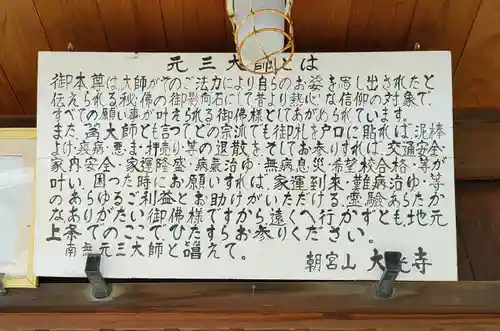 元三大師とは
御本尊は大師がそのご法力により自らのお姿を写し出されたと
伝えられる秘佛の御影向石にして昔より熱心な信仰の対象で、
すべての願い事が叶えられる御佛様としてあがめられています。
また、大師とも言つてどの宗派でも御札を戸口に貼れば、泥棒
よけ・疫病・悪ま・押売り・等の退散をそしてお参りすれば、交通安全・
家内安全・家運隆盛・病氣治ゆ・無病息災・希望校合格・等が
叶い、困った時にお願いすれば、家運到来・難病治ゆ・等
のあらゆるご利益とお助けがいただける、霊験あらたか
なありがたい御佛様ですから遠くへ行かずとも、地元
上条でのここでひたすらお参りください。
南無元三大師と唱えて。
朝宮山 大光寺